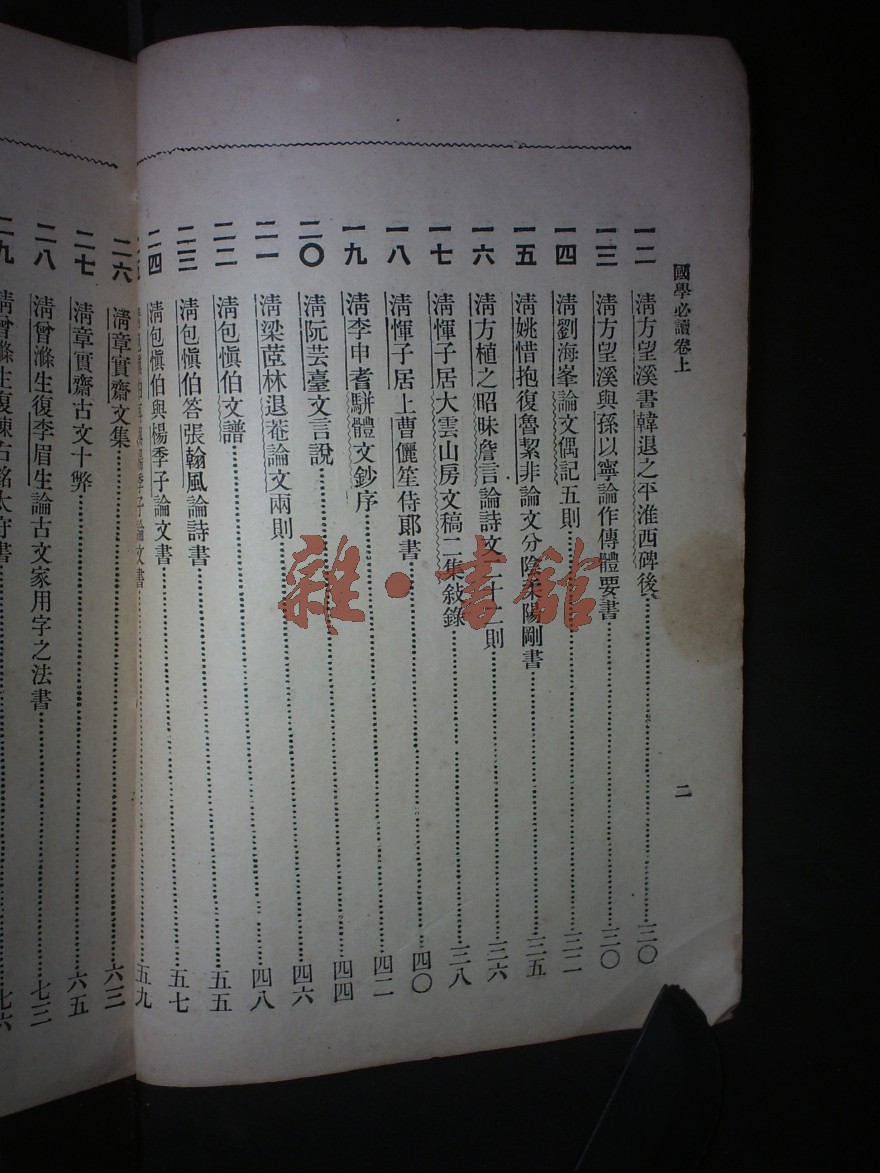 國學必讀卷上
二
一二 清方望溪書韓退之平淮西碑後 三〇
一三 清方望溪與孫以寧論作傳體要書 三〇
一四 清劉海峯論文偶記五則 三二
一五 清姚惜抱復魯絜非論文分陰柔陽剛書 三五
一六 清方植之昭昧詹言論詩文二十二則 三六
一七 清惲子居大雲山房文稿二集敍錄 三八
一八 清惲子居上曹儷笙侍郞書 四〇
一九 清李申耆駢體文鈔序 四二
二〇 清阮芸臺文言說 四四
二一 清梁茝林退菴論文兩則 四六
二二 清包愼伯文譜 四八
二三 清包愼伯答張翰風論詩書 五五
二四 清包愼伯與楊季子論文書 五七
論文書 五九
二六 清章實齋文集 六三
二七 清章實齋古文十弊 六五
二八 清曾滌生復李眉生論古文家用字之法書 七三
二九 清曾滌生復陳右銘太守書 七六
雜·書館